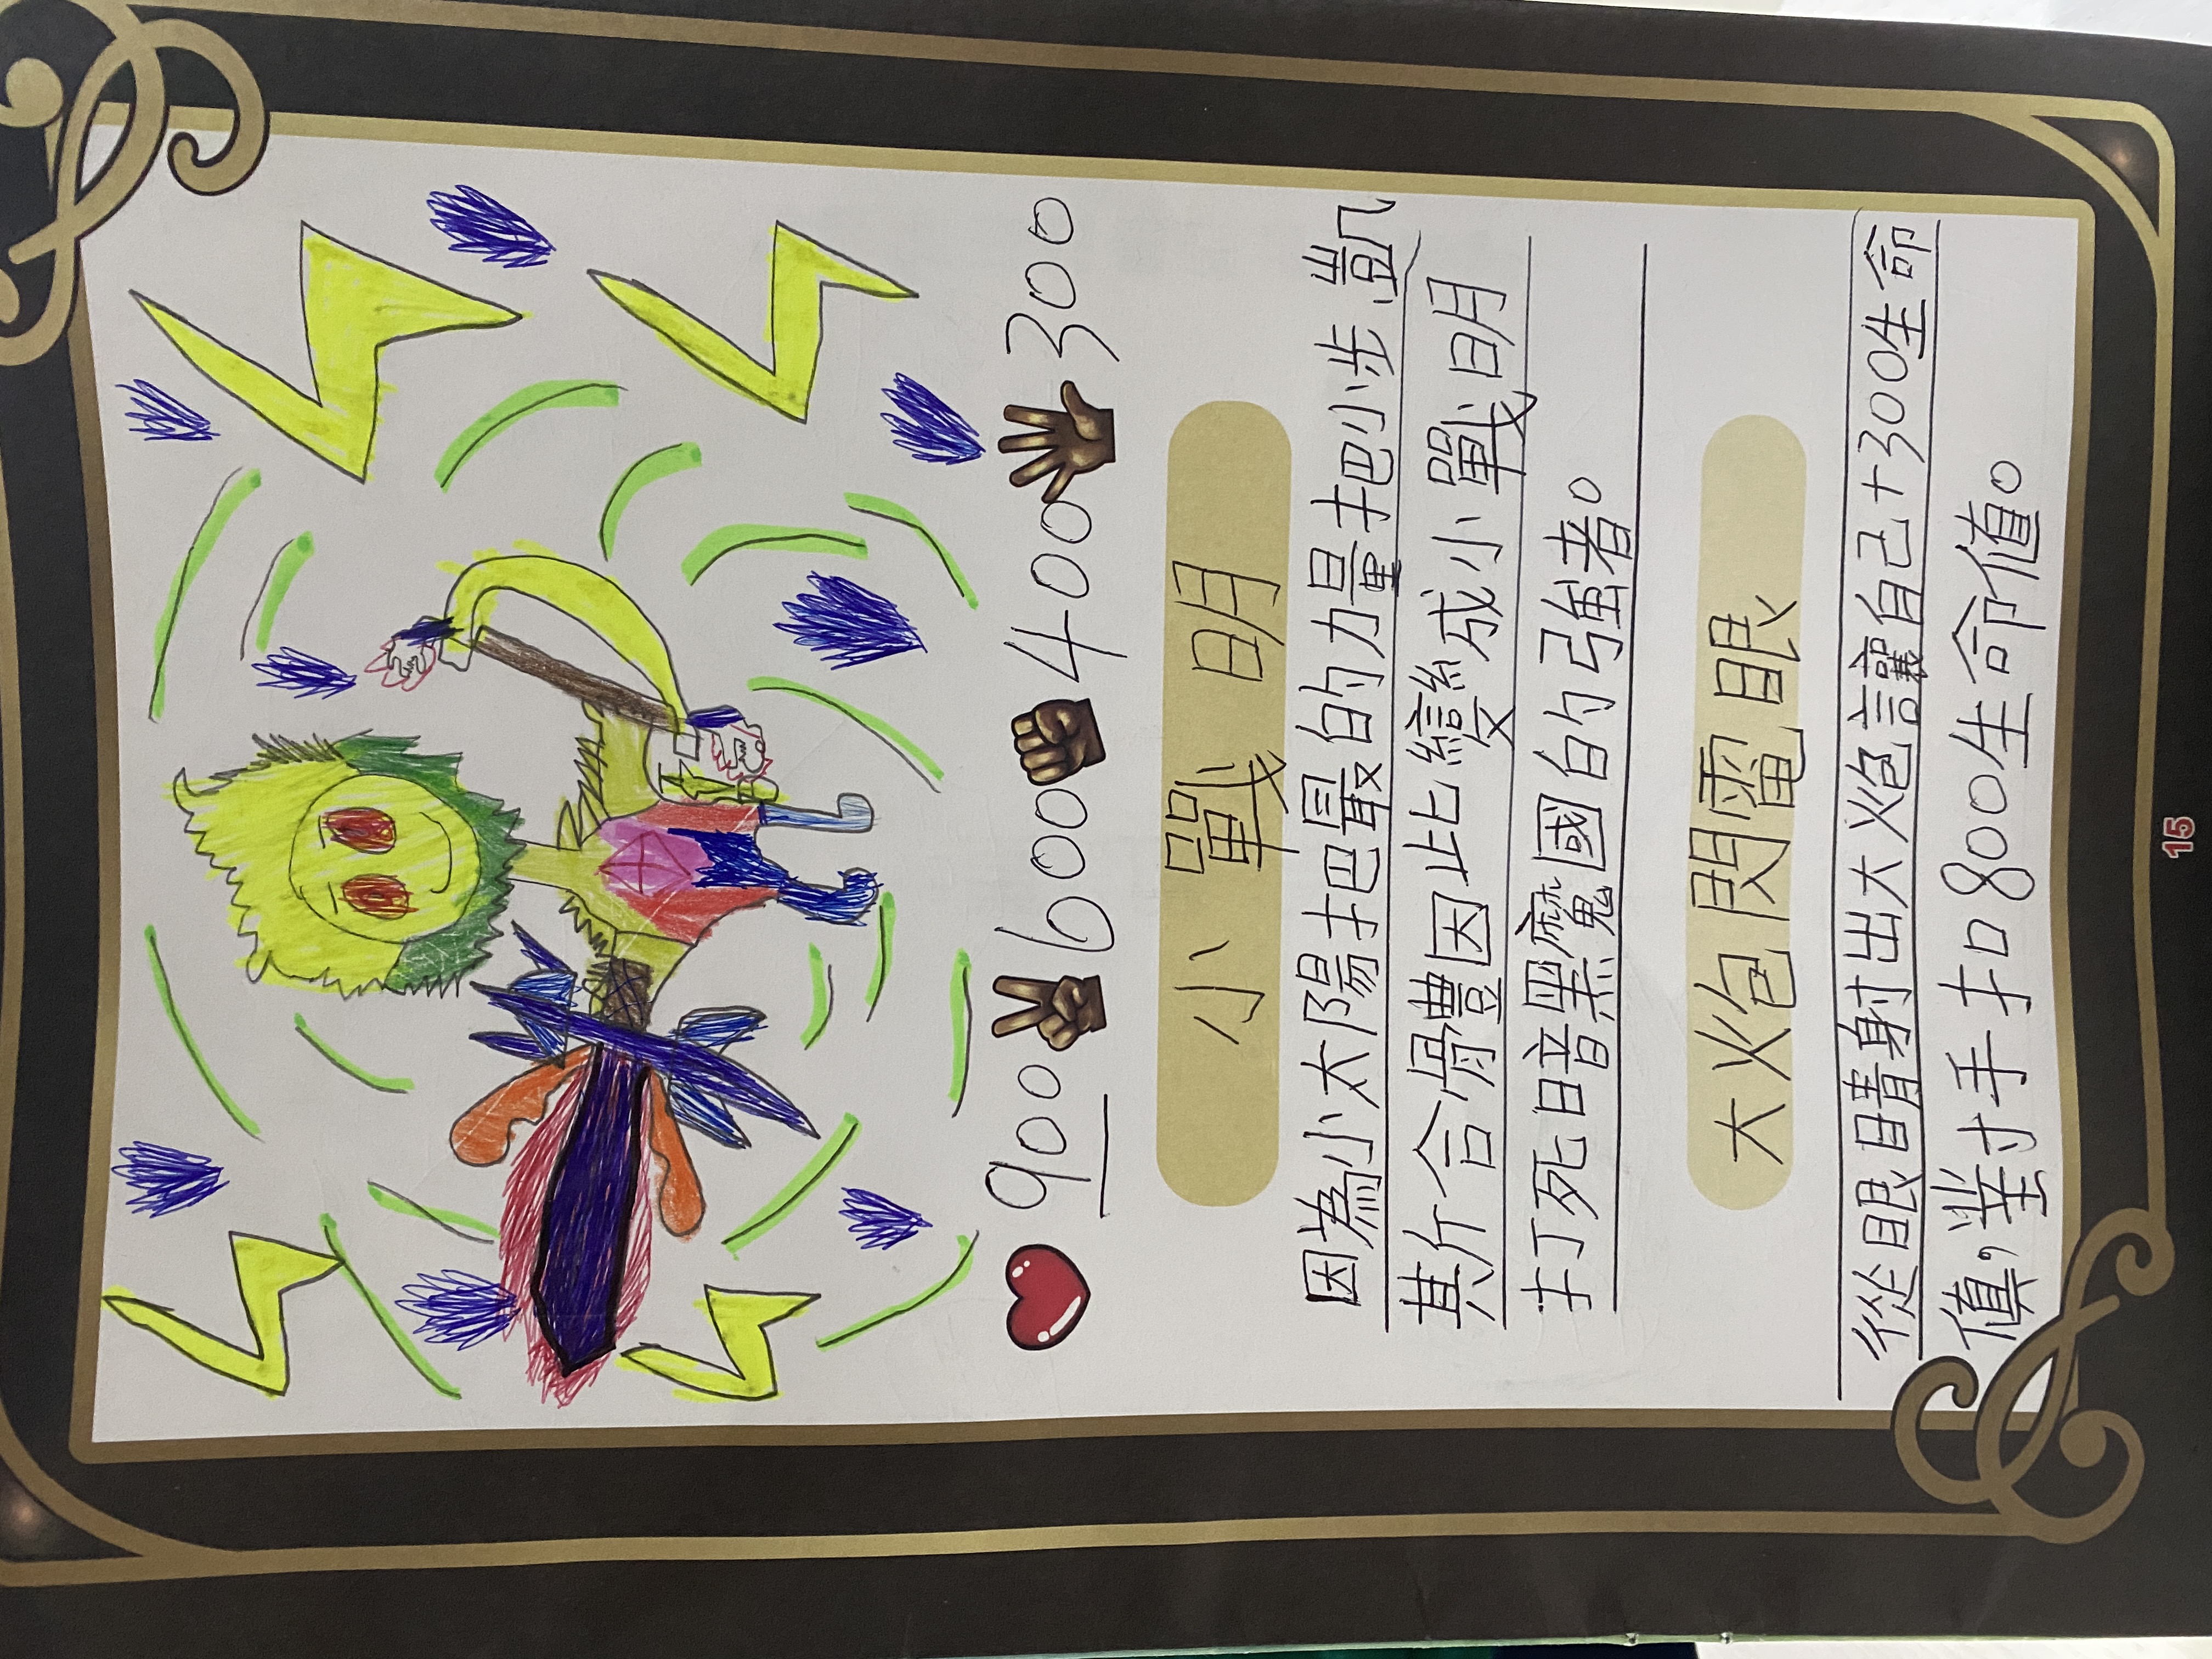 900 600 400 300
小戰明
因為小太陽把最的力量把小步凱
其斤合體因此變成小戰明
打死暗黑魔國的強者。
大炮閃電眼
從眼睛射出大炮讓自己+300生命
值,對手扣800生命值。
15